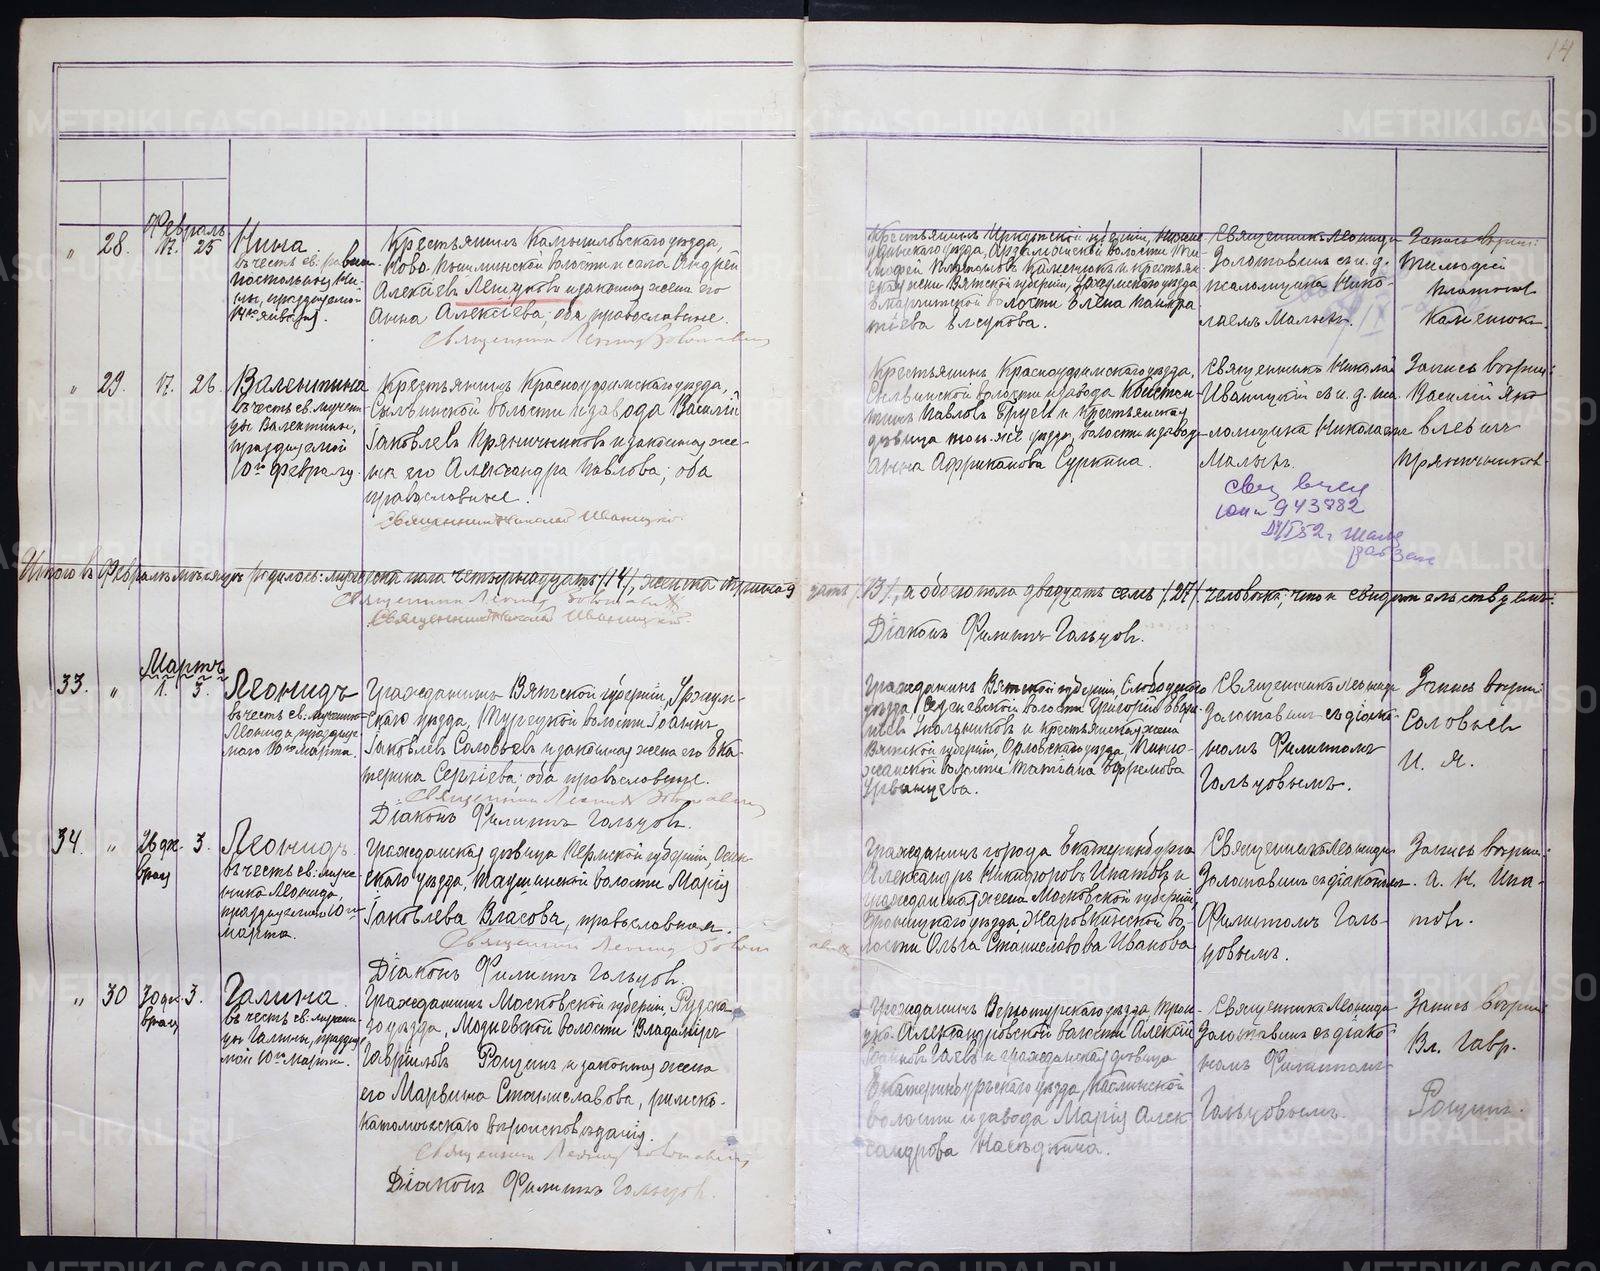 14
Февраль
" 28. 17. 25
Нина
въ честь св: равно-
апостольныя Ни-
ны, празднуемой
14го января.
Крестьянинъ Камышловскаго уѣзда,
Ново-Пышминской волости и села Андрей
Алексѣевъ и законная жена его
Анна Алексѣева; оба православные.
Священникъ Леонидъ Золотавинъ
Крестьянинъ Иркутской губерніи,
уѣзда, волости Ти-
мофей Платоновъ Каменюкъ и крестьян-
ская жена Вятской губерніи, уѣзда
волости Елена Панкра-
тьева
Священникъ Леонидъ
Золотавинъ съ и. д.
псаломщика Нико-
лаемъ Малыхъ.
Запись вѣрна:
Тимофей
Платонов
Каменюкъ.
" 29. 17. 26.
Валентина
въ честь св. мучени-
цы Валентины,
празднуемой
10го февраля.
Крестьянинъ Красноуфимскаго уѣзда,
Сылвинской волости и завода Василій
Іаковлевъ Пряничниковъ и законная же-
на его Александра Павлова; оба
православные.
Священникъ Николай Иваницкій.
Крестьянинъ Красноуфимскаго уѣзда,
Сылвинской волости и завода Констан-
тинъ Павловъ и крестьянская
дѣвица того-же уѣзда, волости и завода
Анна Африканова Суркина.
Священникъ Николай
Иваницкій съ и. д. пса-
ломщика Николаемъ
Малыхъ.
Запись вѣрна:
Василій Яко-
влевич
Пряничников.
943882
Итого въ Февралѣ мѣсяцѣ родилось: мужеска пола четырнадцать /14/, женска тринад-
цать /13/, а обоего пола двадцать семь /27/ человѣкъ; что и свидѣтельствуемъ:
Священникъ Леонидъ Золотавинъ
Священникъ Николай Иваницкій.
Діаконъ Филиппъ Гольцовъ.
Мартъ
33. " 1. 3.
Леонидъ
въ честь св: мученика
Леонида, праздну-
емаго 10го марта.
Гражданинъ Вятской губерніи, Уржум-
скаго уѣзда, Турекской волости Іоаннъ
Іаковлевъ Соловьевъ и законная жена его Ека-
терина Сергіева; оба православные.
Священникъ Леонидъ Золотавинъ
Діаконъ Филиппъ Гольцовъ.
Гражданинъ Вятской губерніи, Слободского
уѣзда, волости Григорій
Школьниковъ и крестьянская жена
Вятской губерніи, Орловскаго уѣзда,
волости Татіана Ефремова
Урванцева.
Священникъ Леонидъ
Золотавинъ съ діако-
номъ Филиппомъ
Гольцовымъ.
Запись вѣрна:
Соловьев
И. Я.
34. " 26 фев-
враля 3.
Леонидъ.
въ честь св: муче-
ника Леонида,
празднуемаго 10го
марта.
Гражданская дѣвица Пермской губерніи, Осин-
скаго уѣзда, Таушинской волости Марія
Іаковлева Власова, православная.
Священникъ Леонидъ Золотавинъ
Діаконъ Филиппъ Гольцовъ.
Гражданинъ города Екатеринбурга
Александръ Никифоровъ Ипатовъ и
гражданская жена Московской губерніи,
уѣзда, во-
лости Ольга Станиславова Иванова
Священникъ Леонидъ
Золотавинъ съ діакономъ
Филиппомъ Голь-
цовымъ.
Запись вѣрна:
А. Н. Ипа-
тов.
" 30 3.
Галина.
въ честь св: мучени-
цы Галины, праздну-
мой 10го марта.
Гражданинъ Московской губерніи, Рузска-
го уѣзда, волости Владиміръ
Гавріиловъ Рощинъ и законная жена
его Марьяна Станиславова, римско-
католическаго вѣроисповѣданія.
Священникъ Леонидъ Золотавинъ
Діаконъ Филиппъ Гольцовъ.
Гражданинъ Верхотурскаго уѣзда, Трои-
цко-Александровской волости Алексій
и гражданская дѣвица
Екатеринбургскаго уѣзда, Каслинской
волости и завода Марія Алек-
сандрова Насѣдкина.
Священникъ Леонидъ
Золотавинъ съ діако-
номъ Филиппомъ
Гольцовымъ.
Запись вѣрна:
Вл. Гавр.
Рощин.
METRIKI.GASO-URAL.RU